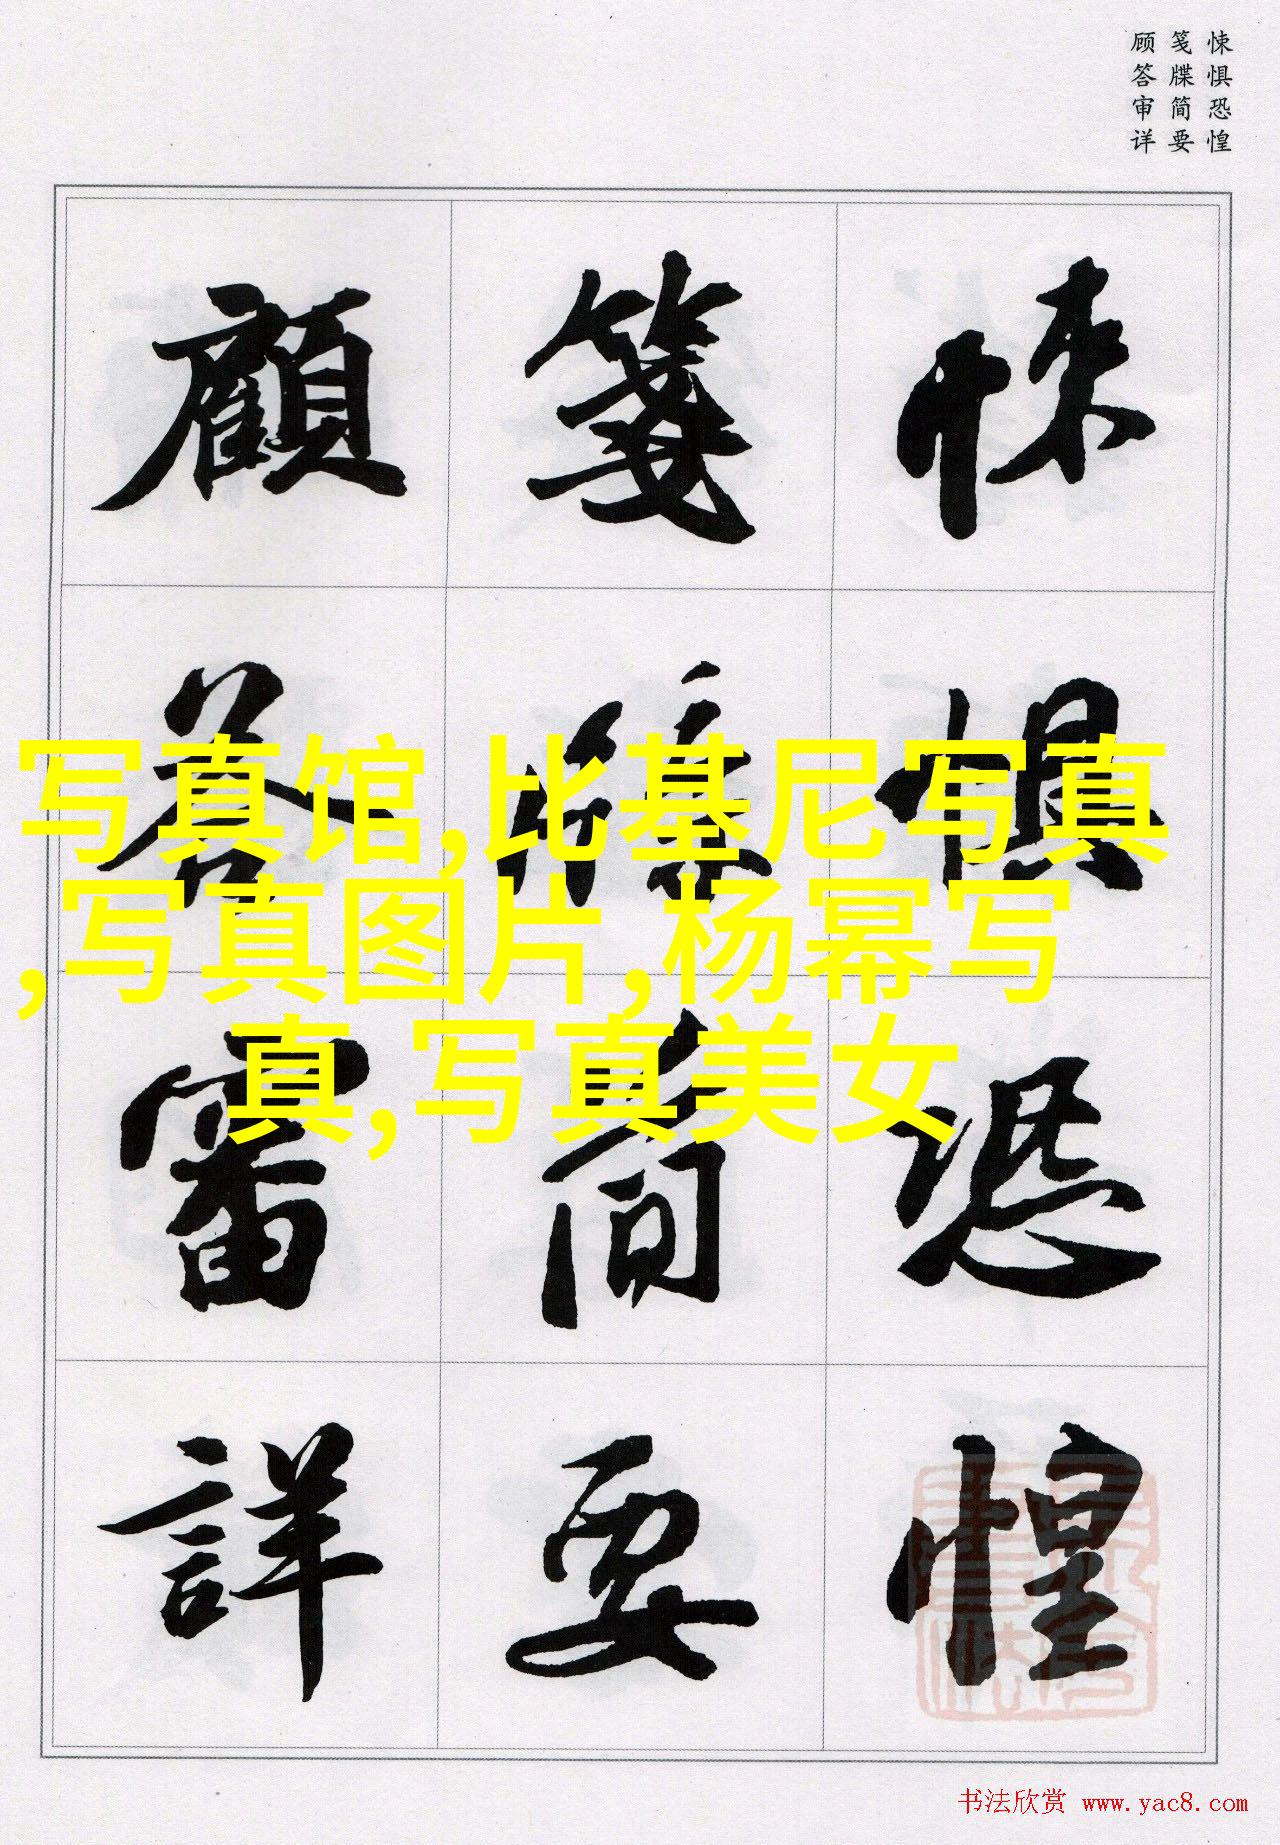 悚惧恐惶
笺牒简要
顾答审详
悚懼恐惶
箋牒簡要
顧答審詳
写真馆,比基尼写真
,写真图片,杨幂写
真,写真美女
书法欣赏 www.yac8.com